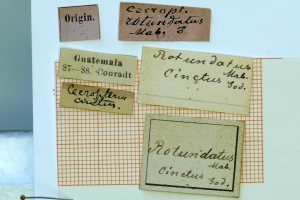 Origin.
Cecropt.
rotundatus
Mab. ♂
Guatemala
87-88. Conradt
Cecropterus
cinctus.
Rotundatus
Mab.
Cinctus
God.
Rotundatus
Mab.
Cinctus
God.